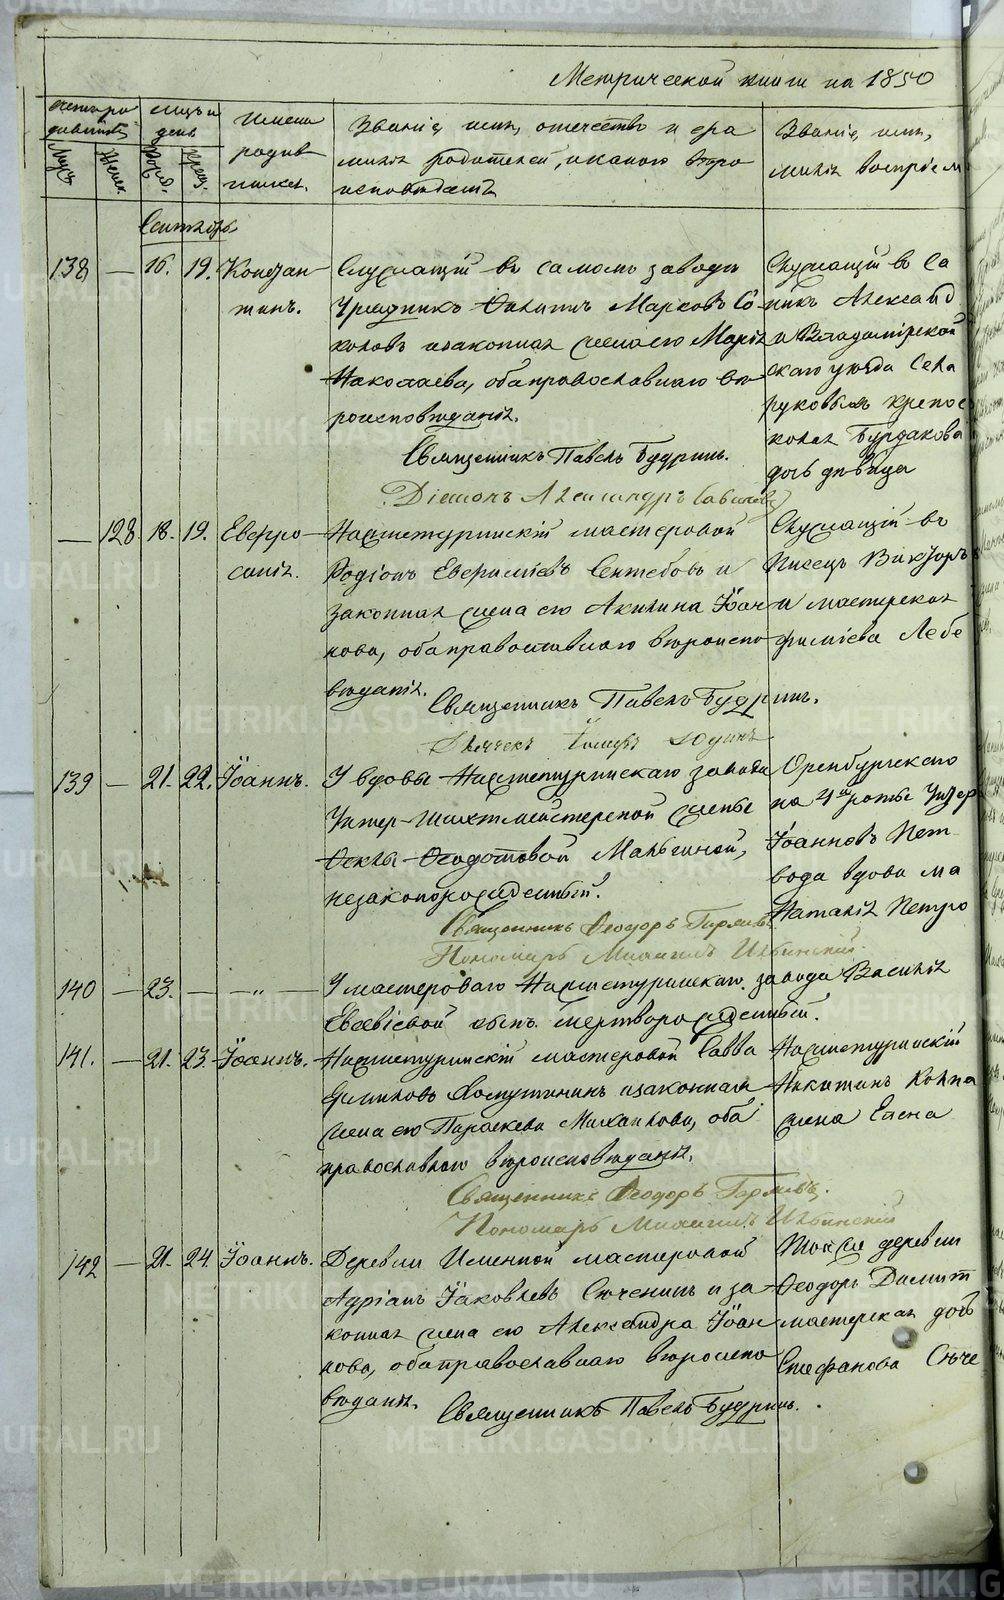 Метрической книги на 1850
Счетъ ро
дившихся
Муж.
Женск.
Мѣсяцъ и
день
Рожд.
Крещ.
Имена
родив
шихся.
Званіе, имя, отечество и фа
милія родителей, и какого вѣро
исповѣданія
Званіе, имя,
милія воспріем
Сентябрь
138 — 16. 19. Констан
тинъ.
Служащій въ самомъ заводѣ
Урядникъ Филиппъ Марковъ Со
коловъ и законная жена его Марія
Николаева, оба православнаго вѣ
роисповѣданія.
Священникъ Павелъ Будринъ.
Діаконъ Александръ
Служащій въ Са
никъ Александ
и Владимірской
скаго уѣзда Села
руковыхъ крепос
колая Бурдакова
дочь дѣвица
— 128 18. 19. Евфро
синія.
Нижнетуринскій мастеровой
Родіонъ Евфиміевъ и
законная жена его Акилина Іоан
нова, оба православнаго вѣроиспо
вѣданія.
Священникъ Павелъ Будринъ.
Служащій въ
Писецъ Викторъ
и мастерская
фиміева Лебе
139 — 21. 22. Іоаннъ.
У вдовы Нижнетуринскаго завода
Унтер-Шихтмейстерской жены
Феклы Феодотовой Мальгиной,
незаконорожденный.
Священникъ Феодоръ
Пономарь Михаилъ Ильинскій.
Оренбургскаго
на 4й роты Унтер
Іоанновъ Пет
вода вдова ма
Наталія Петро
140 — 23. — „ —
У мастероваго Нижнетуринскаго завода Василія
Евсевіевой сынъ мертворожденный.
141. — 21. 23. Іоаннъ.
Нижнетуринскій мастеровой Савва
Хомутининъ и законная
жена его Параскева Михайлова, оба
православнаго вѣроисповѣданія.
Священникъ Феодоръ
Пономарь Михаилъ Ильинскій
Нижнетуринскій
Никитинъ Колпа
жена Елена
142 — 21. 24. Іоаннъ.
Деревни Именной мастеровой
Адріанъ Іаковлевъ Сюченинъ и за
конная жена его Александра Іоан
нова, оба православнаго вѣроиспо
вѣданія.
Священникъ Павелъ Будринъ.
Той же деревни
Феодоръ Димит
мастерская дочь
Стефанова Сюче
METRIKI.GASO-URAL.RU